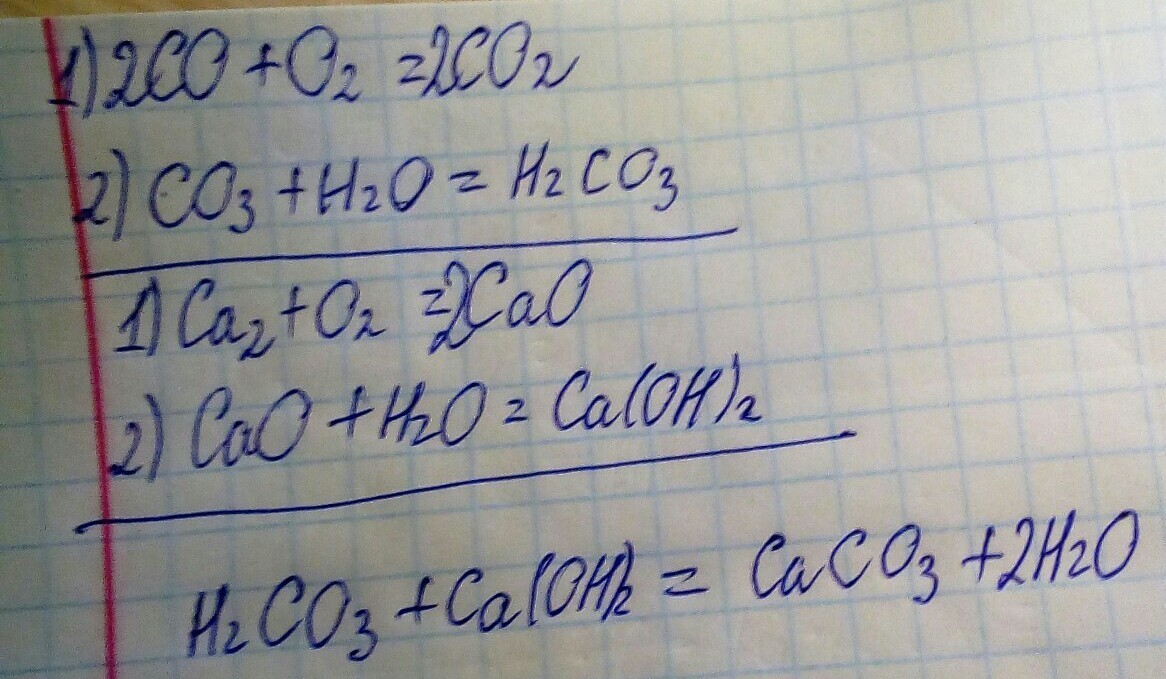 1) 2CO + O2 = 2CO2
2) CO3 + H2O = H2CO3
1) Ca2 + O2 = 2CaO
2) CaO + H2O = Ca(OH)2
H2CO3 + Ca(OH)2 = CaCO3 + 2H2O